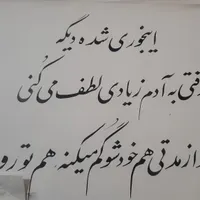 اینجوری شده دیگه
وقتی به آدم زیادی لطف می کنی
از مدتی هم خودشو گم میکنه هم تو رو